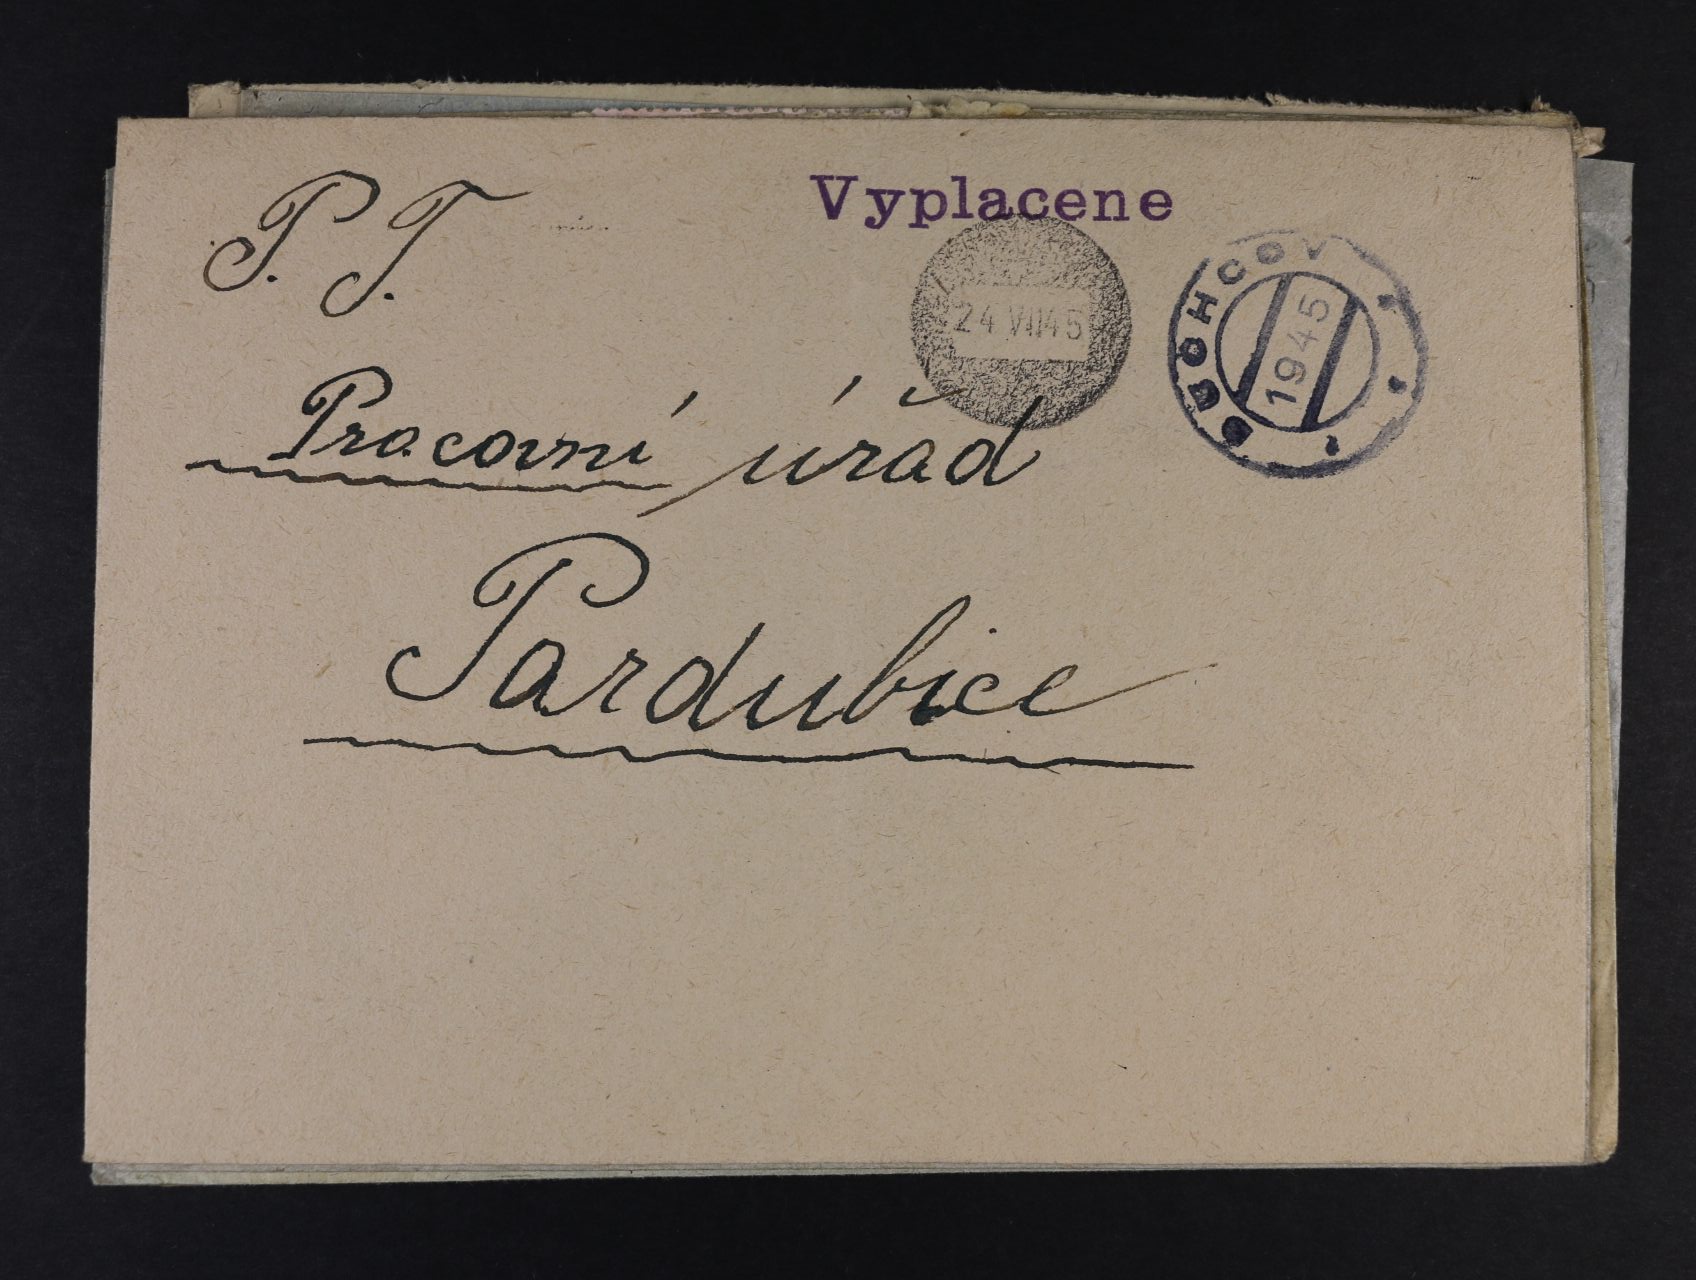 P. T.
Vyplacene
24 VII 45
DUCHCOV
1945
Pracovní úřad
Pardubice